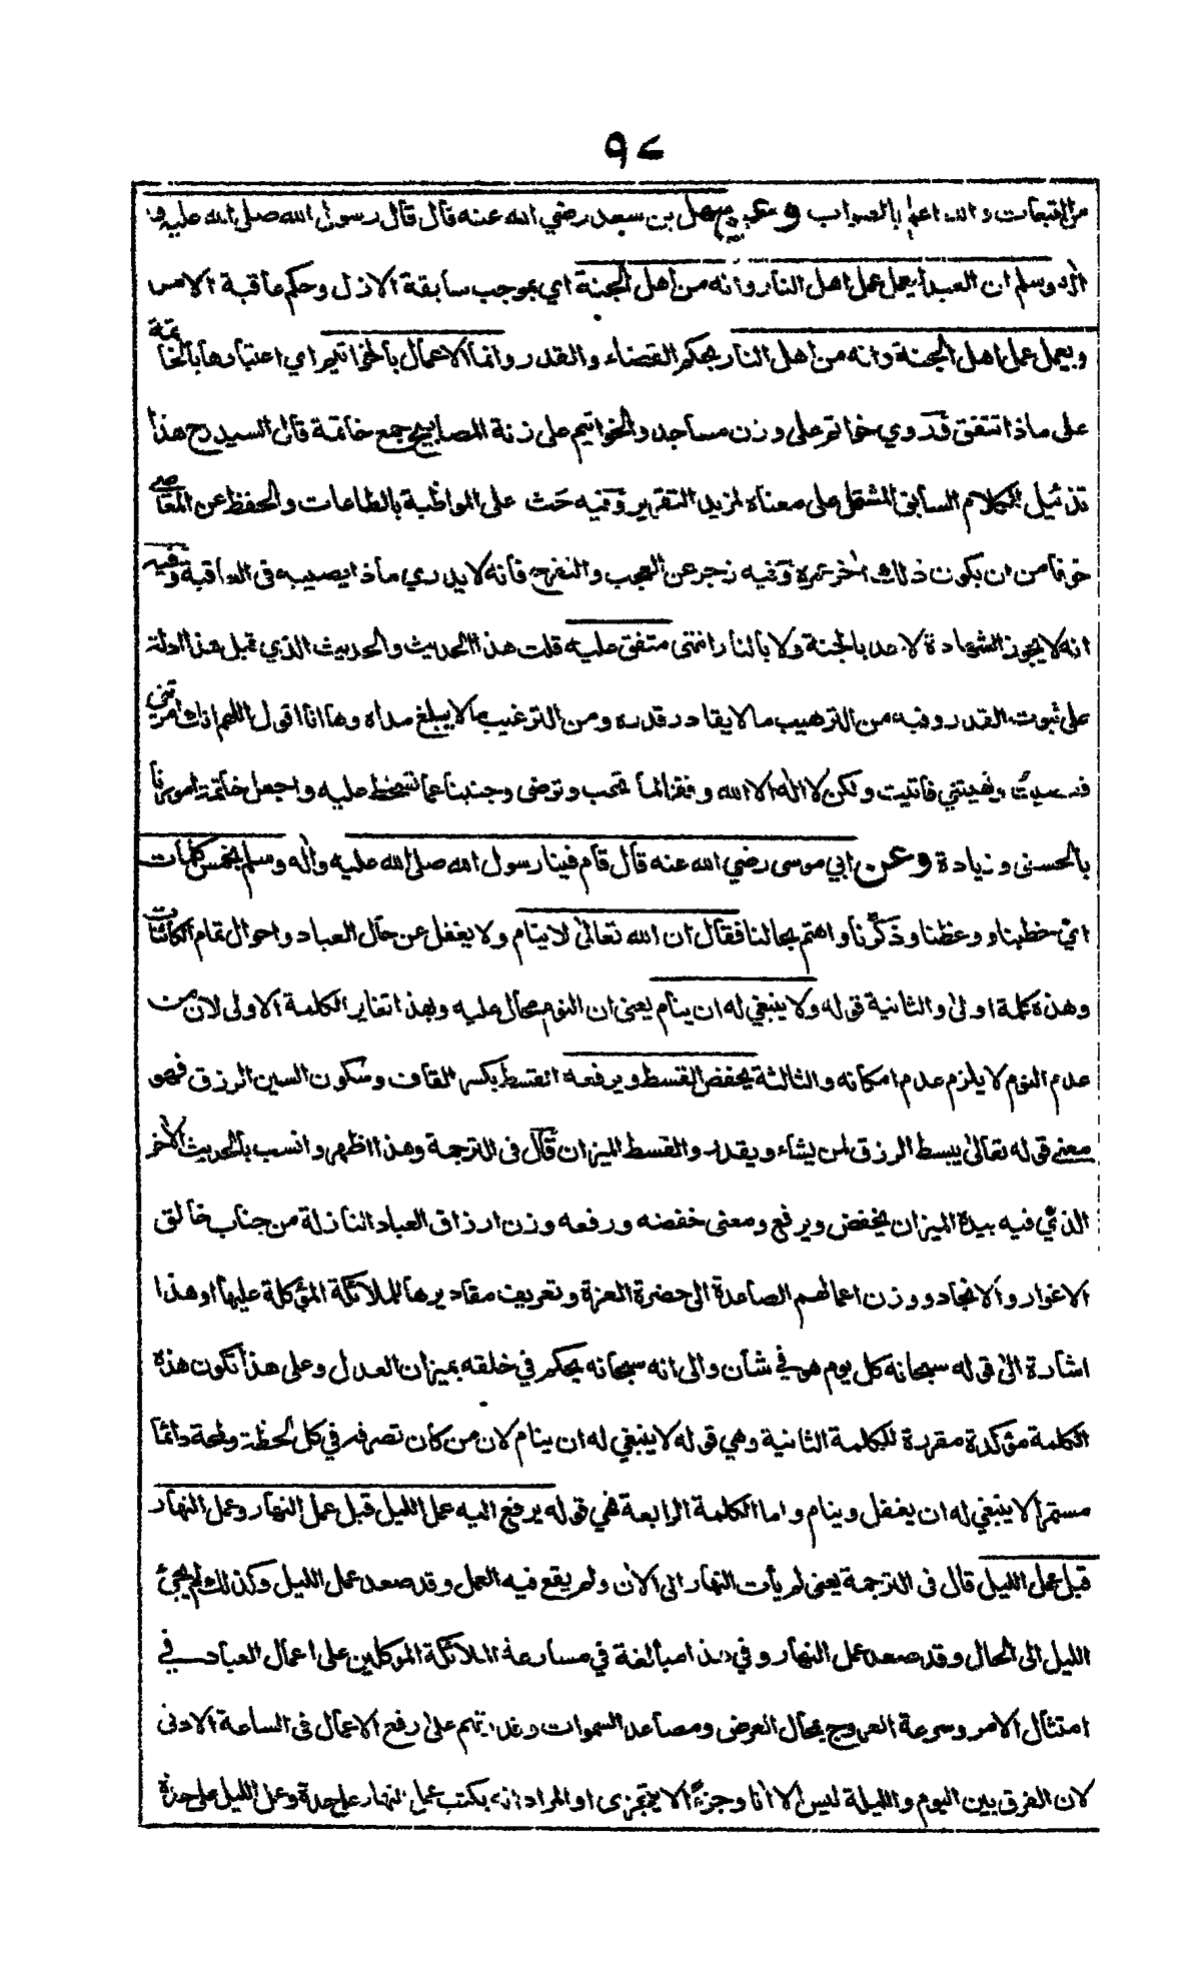 ٩٤
من التبعات والله اعلم بالصواب وعن سهل بن سعد رضي الله عنه قال قال رسول الله صلى الله عليه و
اله وسلم ان العبد ليعمل عمل اهل النار وانه من اهل الجنة اي بموجب سابقة الازل وحكم عاقبة الامر
ويعمل عمل اهل الجنة وانه من اهل النار بحكم القضاء والقدر وانما الاعمال بالخواتيم اي اعتبارها بالخاتمة
على ماذا تتفق وروي خواتم على وزن مساجد والخواتيم على زنة المصابيح جمع خاتمة قال السيد رح هذا
تذئيل الكلام السابق المشتمل على معناه لمزيد التقرير وفيه حَث على المواظبة بالطاعات والحفظ عن المعاصي
خوفا من ان يكون ذلك اخر عمره وفيه زجر عن العجب والتفرح فانه لا يدري ماذا يصيبه في العاقبة وفيه
انه لا يجوز الشهادة لاحد بالجنة ولا بالنار انتهى متفق عليه قلت هذا الحديث والحديث الذي قبل هذا ادلة
على ثبوت القدر وفيه من الترهيب ما لا يقادر قدره ومن الترغيب ما لا يبلغ مداه وها انا اقول اللهم انك امرتني
فعصيت ونهيتني فاتيت ولكن لا اله الا الله وفقنا لما تحب وترضى وجنبنا عما تسخط عليه واجعل خاتمة امورنا
بالحسنى وزيادة وعن ابي موسى رضي الله عنه قال قام فينا رسول الله صلى الله عليه واله وسلم بخمس كلمات
اي خطبنا ووعظنا وذكّرنا واهتم بحالنا فقال ان الله تعالى لا ينام ولا يغفل عن حال العباد واحوال تمام الكائنات
وهذه كلمة اولى والثانية قوله ولا ينبغي له ان ينام يعني ان النوم محال عليه وبهذا تغاير الكلمة الاولى لان من
عدم النوم لا يلزم عدم امكانه والثالثة يخفض القسط ويرفعه القسط بكسر القاف وسكون السين الرزق فهو
معنى قوله تعالى يبسط الرزق لمن يشاء ويقدر والقسط الميزان قال في الترجمة وهذا اظهر وانسب بالحديث الاخر
الذي فيه بيده الميزان يخفض ويرفع ومعنى خفضه ورفعه وزن ارزاق العباد النازلة من جناب خالق
الاغوار والانجاد ووزن اعمالهم الصاعدة الى حضرة العزة وتعريف مقاديرها للملائكة المؤكلة عليها وهذا
اشارة الى قوله سبحانه كل يوم هو في شأن والى انه سبحانه يحكم في خلقه بميزان العدل وعلى هذا تكون هذه
الكلمة مؤكدة مقررة للكلمة الثانية وهي قوله لا ينبغي له ان ينام لان من كان تصرفه في كل لحظة ولمحة دائما
مستمرا لا ينبغي له ان يغفل وينام واما الكلمة الرابعة فهي قوله يرفع اليه عمل الليل قبل عمل النهار وعمل النهار
قبل عمل الليل قال في الترجمة يعني لم يأت النهار الى الآن ولم يقع فيه العمل وقد صعد عمل الليل وكذلك لم يجئ
الليل الى الحال وقد صعد عمل النهار وفي هذا مبالغة في مسارعة الملائكة الموكلين على اعمال العباد في
امتثال الامر وسرعة العروج بمحال العرض ومصاعد السموات وقدرتهم على رفع الاعمال في الساعة الادنى
لان الفرق بين اليوم والليلة ليس الا انا وجزءًا لا يتجزى او المراد انه يكتب عمل النهار على حدة وعمل الليل على حدة